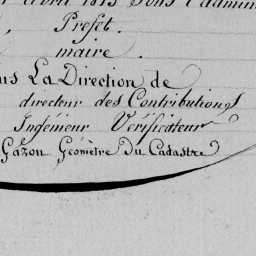 avril 1813 sous l'admini
, Prefet.
, maire.
us La Direction de
directeur des Contributions
Ingénieur Vérificateur
Gazou Géomètre Du Cadastre